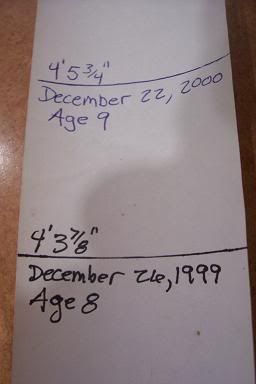 4'5 3/4"
December 22, 2000
Age 9
4'3 7/8"
December 26, 1999
Age 8